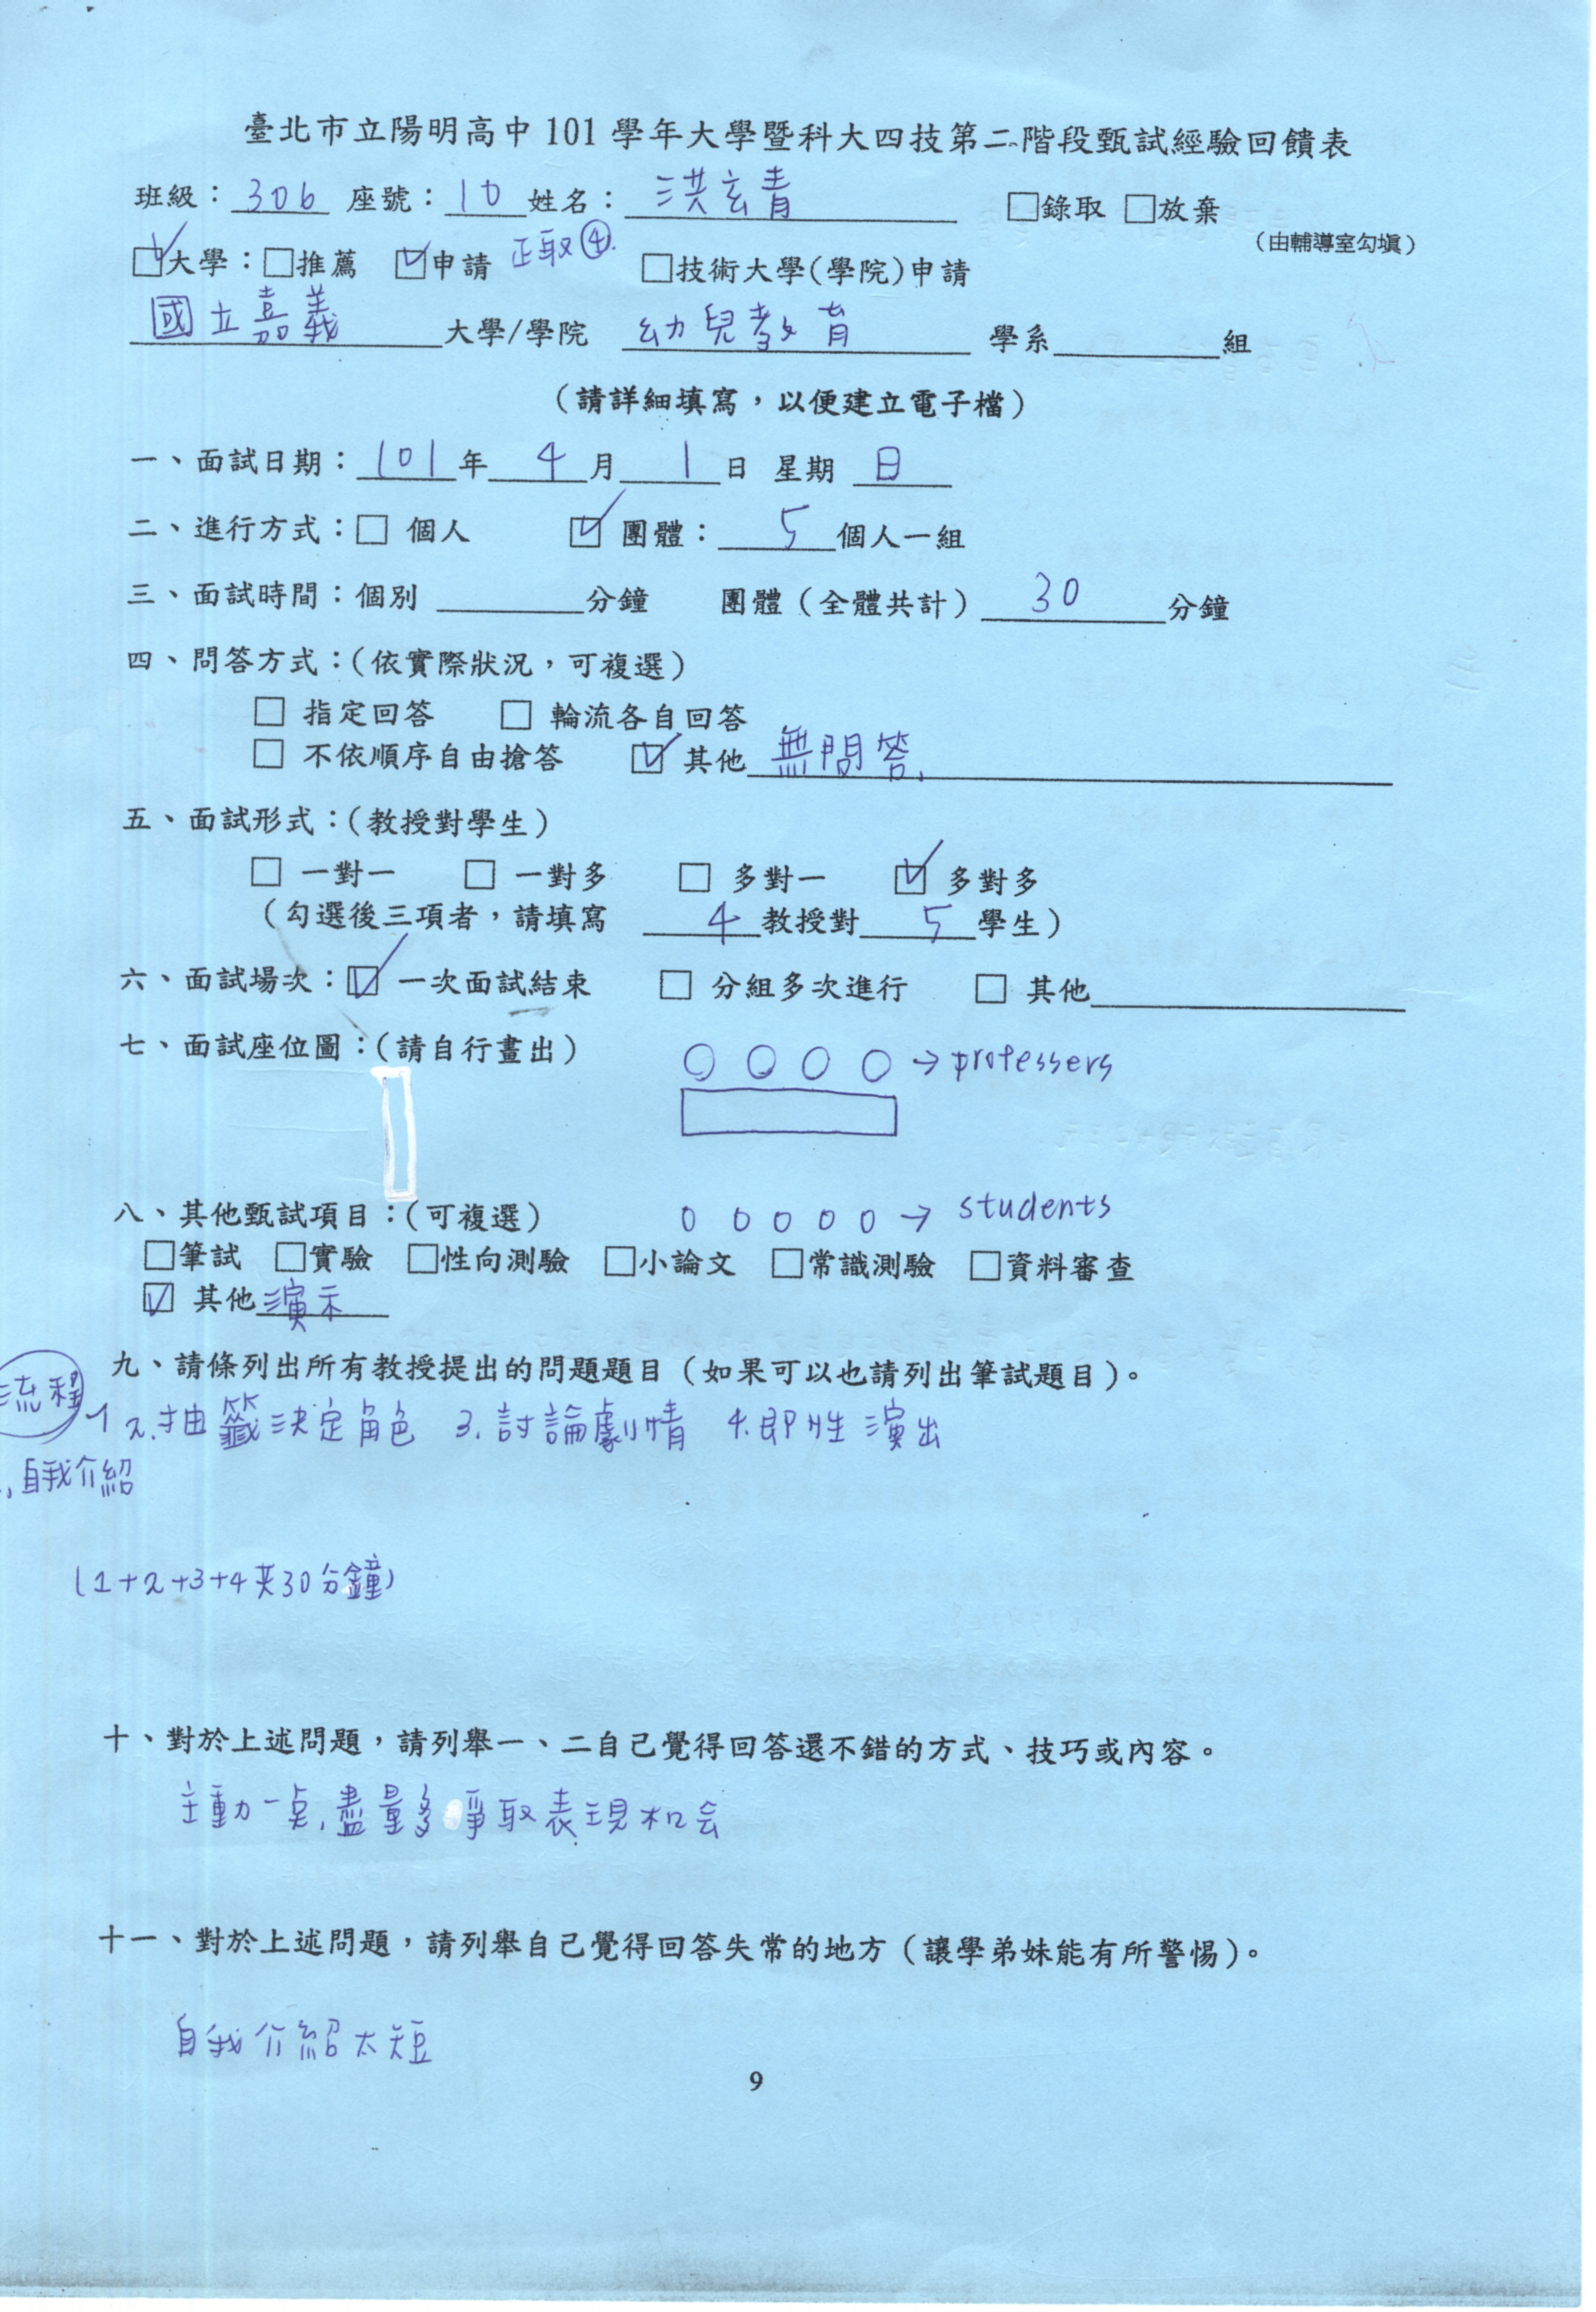 臺北市立陽明高中 101 學年大學暨科大四技第二階段甄試經驗回饋表
班級：306 座號：10 姓名：洪玄青 □錄取 □放棄
（由輔導室勾填）
☑大學：□推薦 ☑申請 正取④. □技術大學(學院)申請
國立嘉義 大學/學院 幼兒教育 學系______組
（請詳細填寫，以便建立電子檔）
一、面試日期：101年 4月 1日 星期 日
二、進行方式：□ 個人 ☑ 團體：5個人一組
三、面試時間：個別 ______分鐘 團體（全體共計）30分鐘
四、問答方式：（依實際狀況，可複選）
□ 指定回答 □ 輪流各自回答
□ 不依順序自由搶答 ☑ 其他 無問答
五、面試形式：（教授對學生）
□ 一對一 □ 一對多 □ 多對一 ☑ 多對多
（勾選後三項者，請填寫 4教授對5學生）
六、面試場次：☑ 一次面試結束 □ 分組多次進行 □ 其他______
七、面試座位圖：（請自行畫出）
→ professers
八、其他甄試項目：（可複選）
→ students
□筆試 □實驗 □性向測驗 □小論文 □常識測驗 □資料審查
☑ 其他演示
九、請條列出所有教授提出的問題題目（如果可以也請列出筆試題目）。
流程
2.抽籤決定角色 3.討論劇情 4.即性演出
自我介紹
(1+2+3+4共30分鐘)
十、對於上述問題，請列舉一、二自己覺得回答還不錯的方式、技巧或內容。
主動一点,盡量多爭取表現机会
十一、對於上述問題，請列舉自己覺得回答失常的地方（讓學弟妹能有所警惕）。
自我介紹太短
9